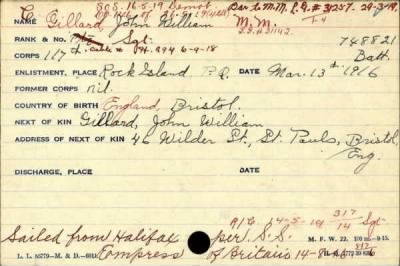 S.O.S. 16-5-19 Demob Bar to M.M. L.G.# 31257. 29-3-19.
NAME Gillard, John William M.M.
RANK & NO. Sgt. L.G. 31142. 748821
CORPS 117th 6-9-18 Batt.
ENLISTMENT, PLACE Rock Island P.Q. DATE Mar. 13th 1916
FORMER CORPS nil.
COUNTRY OF BIRTH England, Bristol.
NEXT OF KIN Gillard, John William
ADDRESS OF NEXT OF KIN 46 Wilder St., St. Pauls, Bristol,
Eng.
DISCHARGE, PLACE DATE
14-5-19 317/14 Sgt.
Sailed from Halifax per S.S. M. F. W. 22.
L. L. 85779—M. & D. Empress of Britain 14-8-16